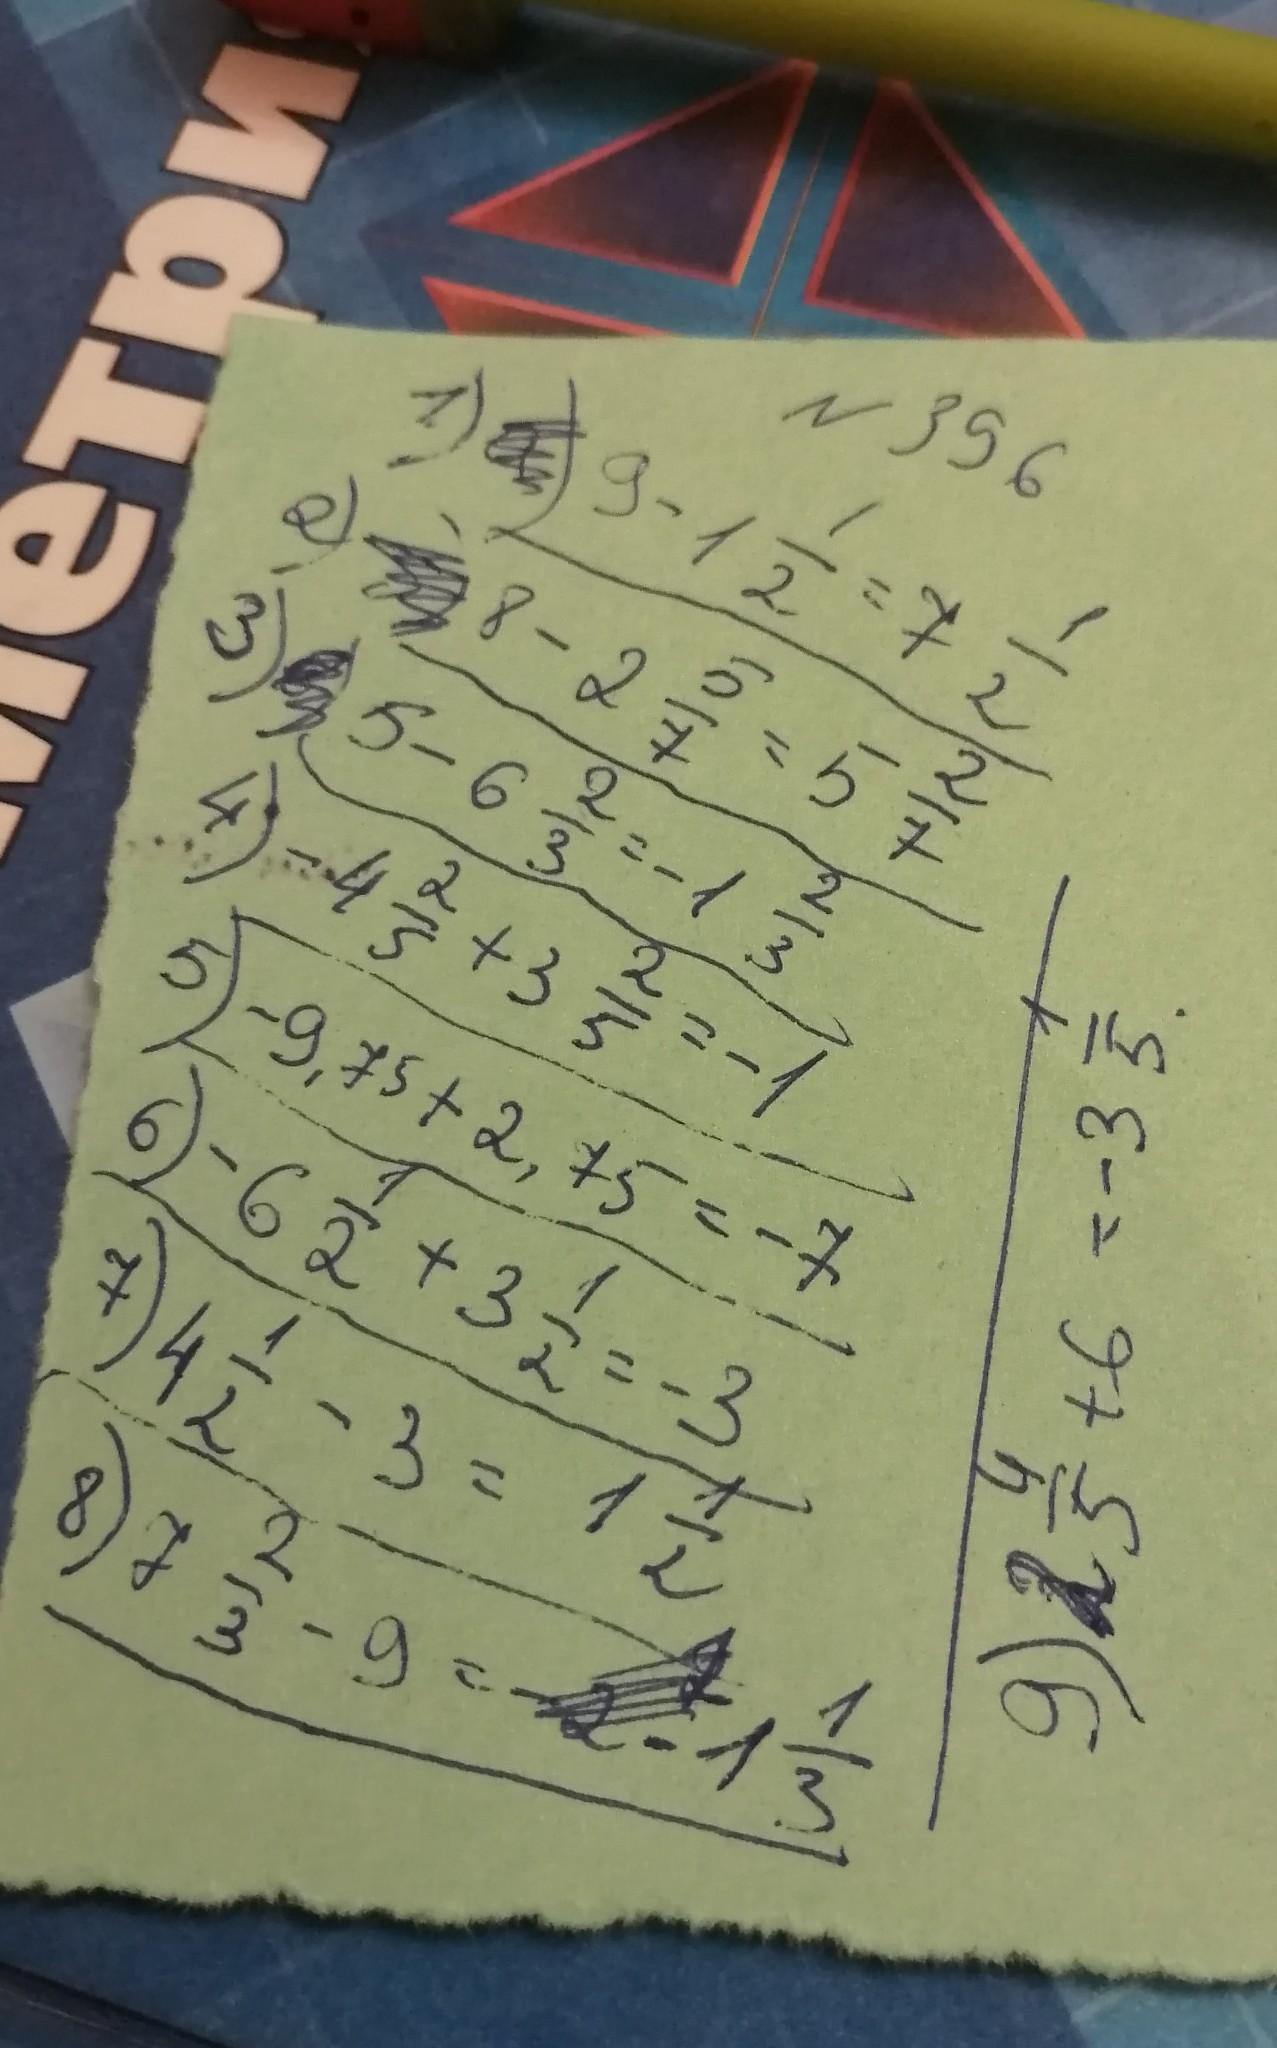 метри
N 396
1) 9 - 1 1/2 = 7 1/2
2) 8 - 2 5/7 = 5 2/7
3) 5 - 6 2/3 = -1 2/3
4) -4 2/5 + 3 2/5 = -1
5) -9,75 + 2,75 = -7
6) -6 1/2 + 3 1/2 = -3
7) 4 1/2 - 3 = 1 1/2
8) 7 2/3 - 9 = - 1 1/3
9) 2 4/5 + 6 = -3 1/5.